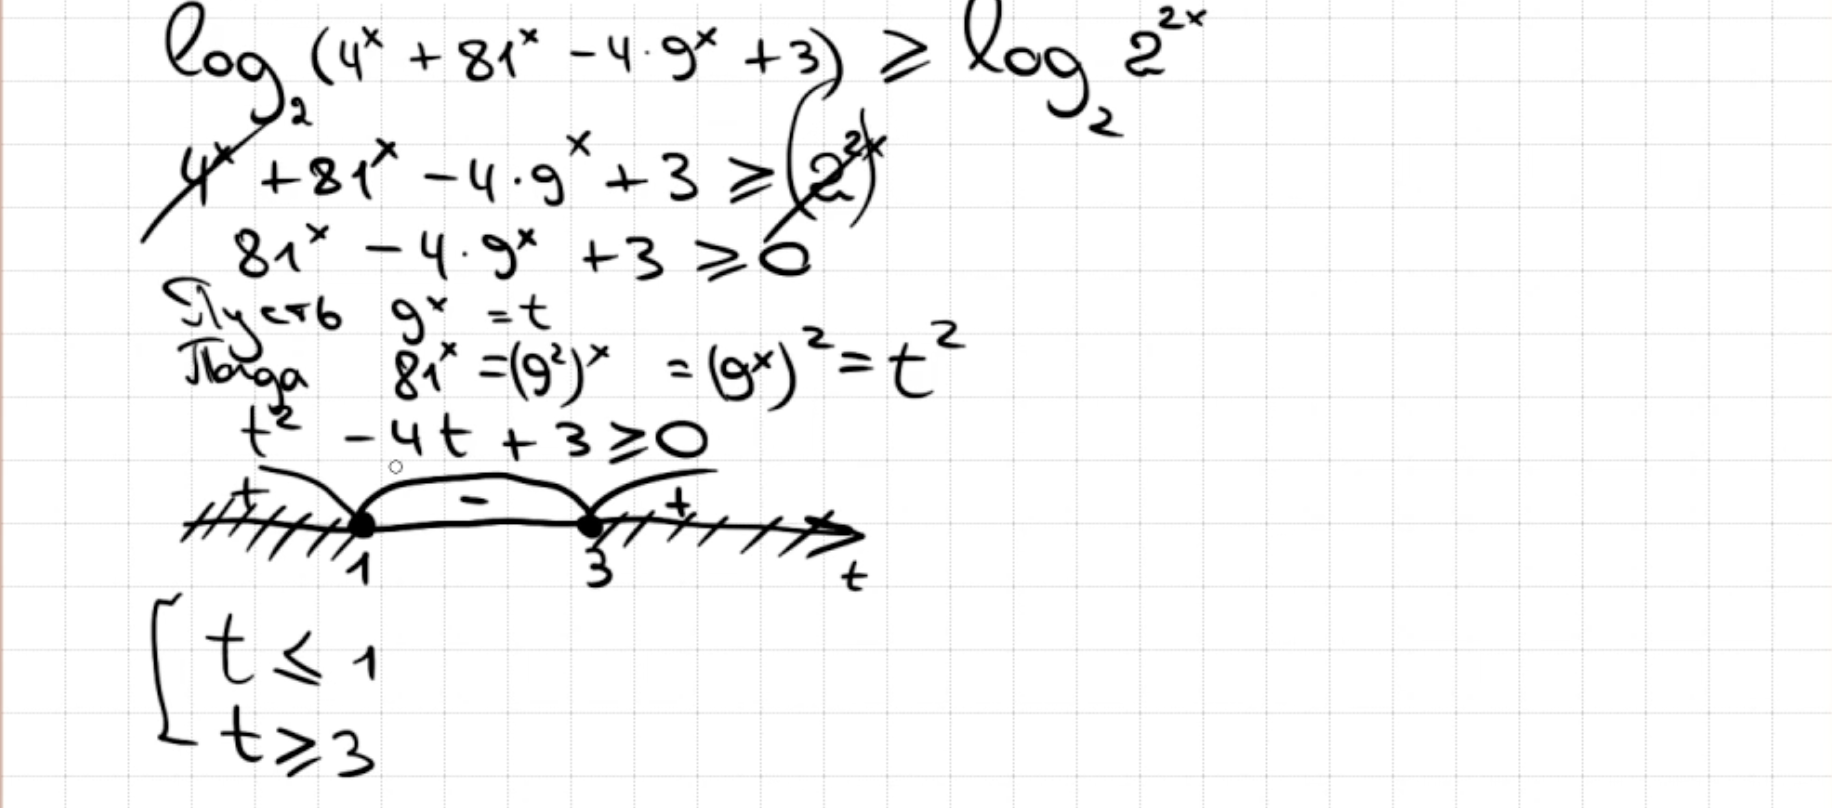 log₂ (4ˣ + 81ˣ − 4·9ˣ + 3) ⩾ log₂ 2²ˣ
4ˣ + 81ˣ − 4·9ˣ + 3 ⩾ (2²ˣ)
81ˣ − 4·9ˣ + 3 ⩾ 0
Пусть 9ˣ = t
Тогда 81ˣ = (9²)ˣ = (9ˣ)² = t²
t² − 4t + 3 ⩾ 0
+ − +
1 3 t
[ t ⩽ 1
t ⩾ 3